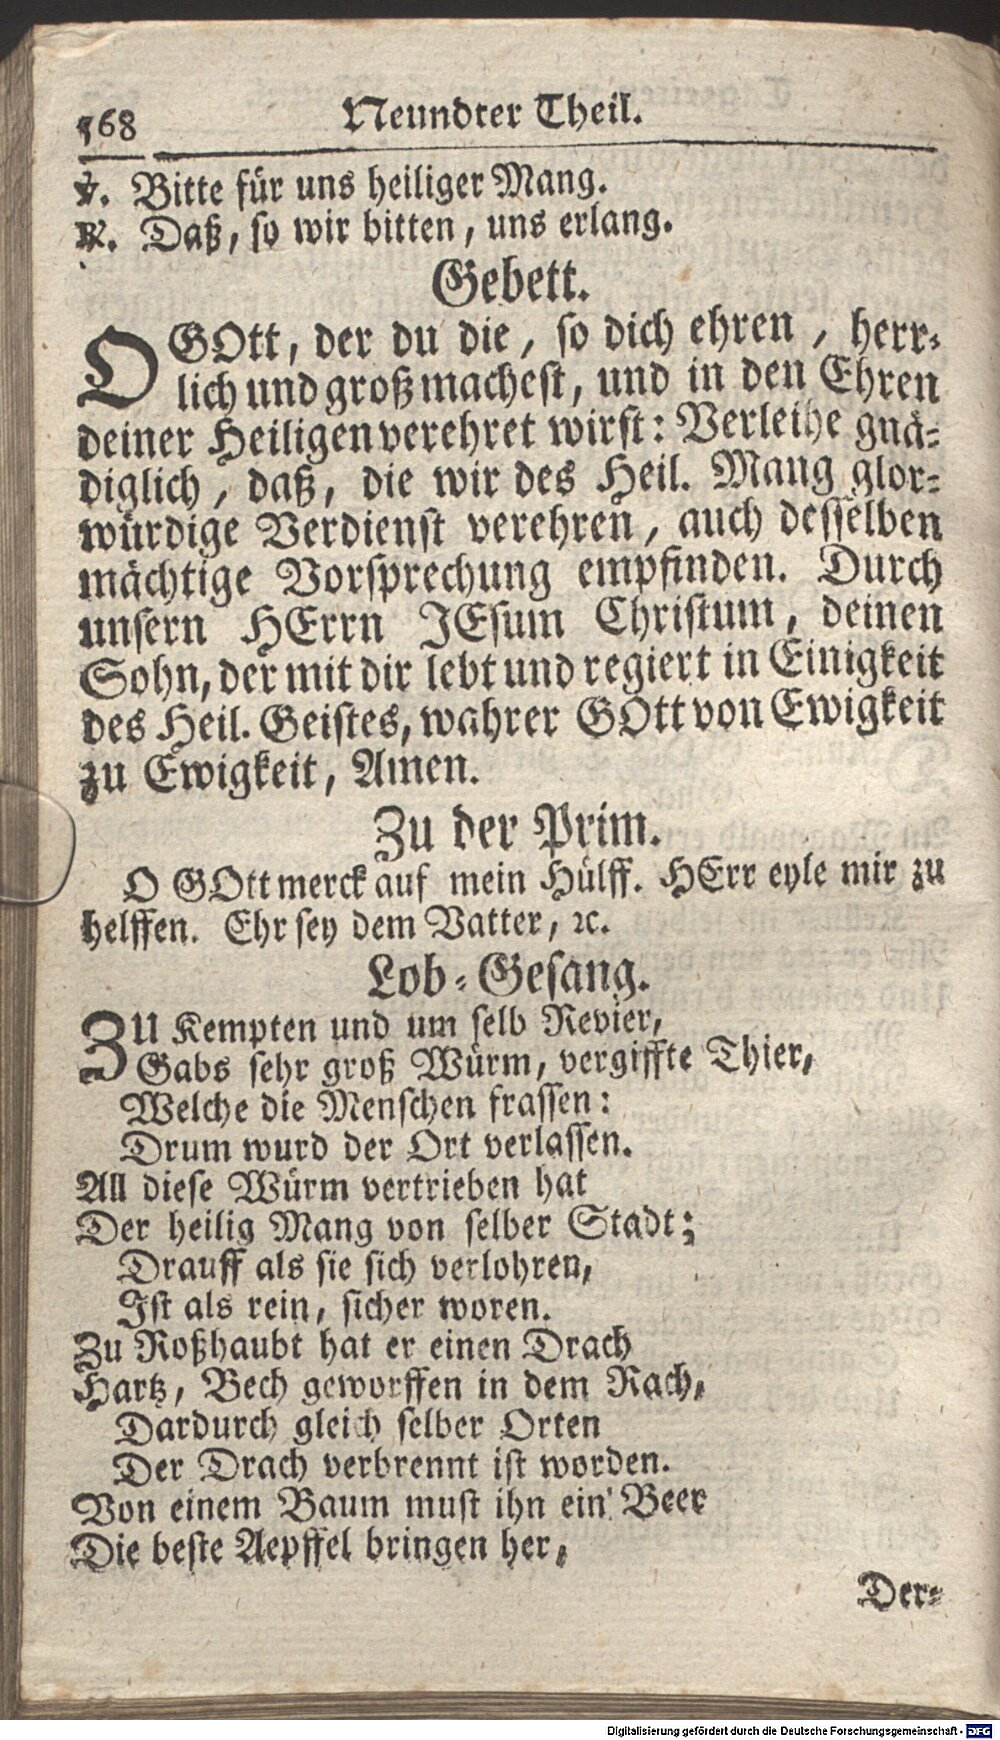 568 Neundter Theil.
℣. Bitte für uns heiliger Mang.
℟. Daß, so wir bitten, uns erlang.
Gebett.
O GOtt, der du die, so dich ehren, herr-
lich und groß machest, und in den Ehren
deiner Heiligen verehret wirst: Verleihe gnä-
diglich, daß, die wir des Heil. Mang glor-
würdige Verdienst verehren, auch desselben
mächtige Vorsprechung empfinden. Durch
unsern HErrn JEsum Christum, deinen
Sohn, der mit dir lebt und regiert in Einigkeit
des Heil. Geistes, wahrer GOtt von Ewigkeit
zu Ewigkeit, Amen.
Zu der Prim.
O GOtt merck auf mein Hülff. HErr eyle mir zu
helffen. Ehr sey dem Vatter, ꝛc.
Lob-Gesang.
ZU Kempten und um selb Revier,
Gabs sehr groß Würm, vergiffte Thier,
Welche die Menschen frassen:
Drum wurd der Ort verlassen.
All diese Würm vertrieben hat
Der heilig Mang von selber Stadt;
Drauff als sie sich verlohren,
Ist als rein, sicher woren.
Zu Roßhaubt hat er einen Drach
Hartz, Bech geworffen in dem Rach,
Dardurch gleich selber Orten
Der Drach verbrennt ist worden.
Von einem Baum must ihn ein' Beer
Die beste Aepffel bringen her,
Der-
Digitalisierung gefördert durch die Deutsche Forschungsgemeinschaft - DFG